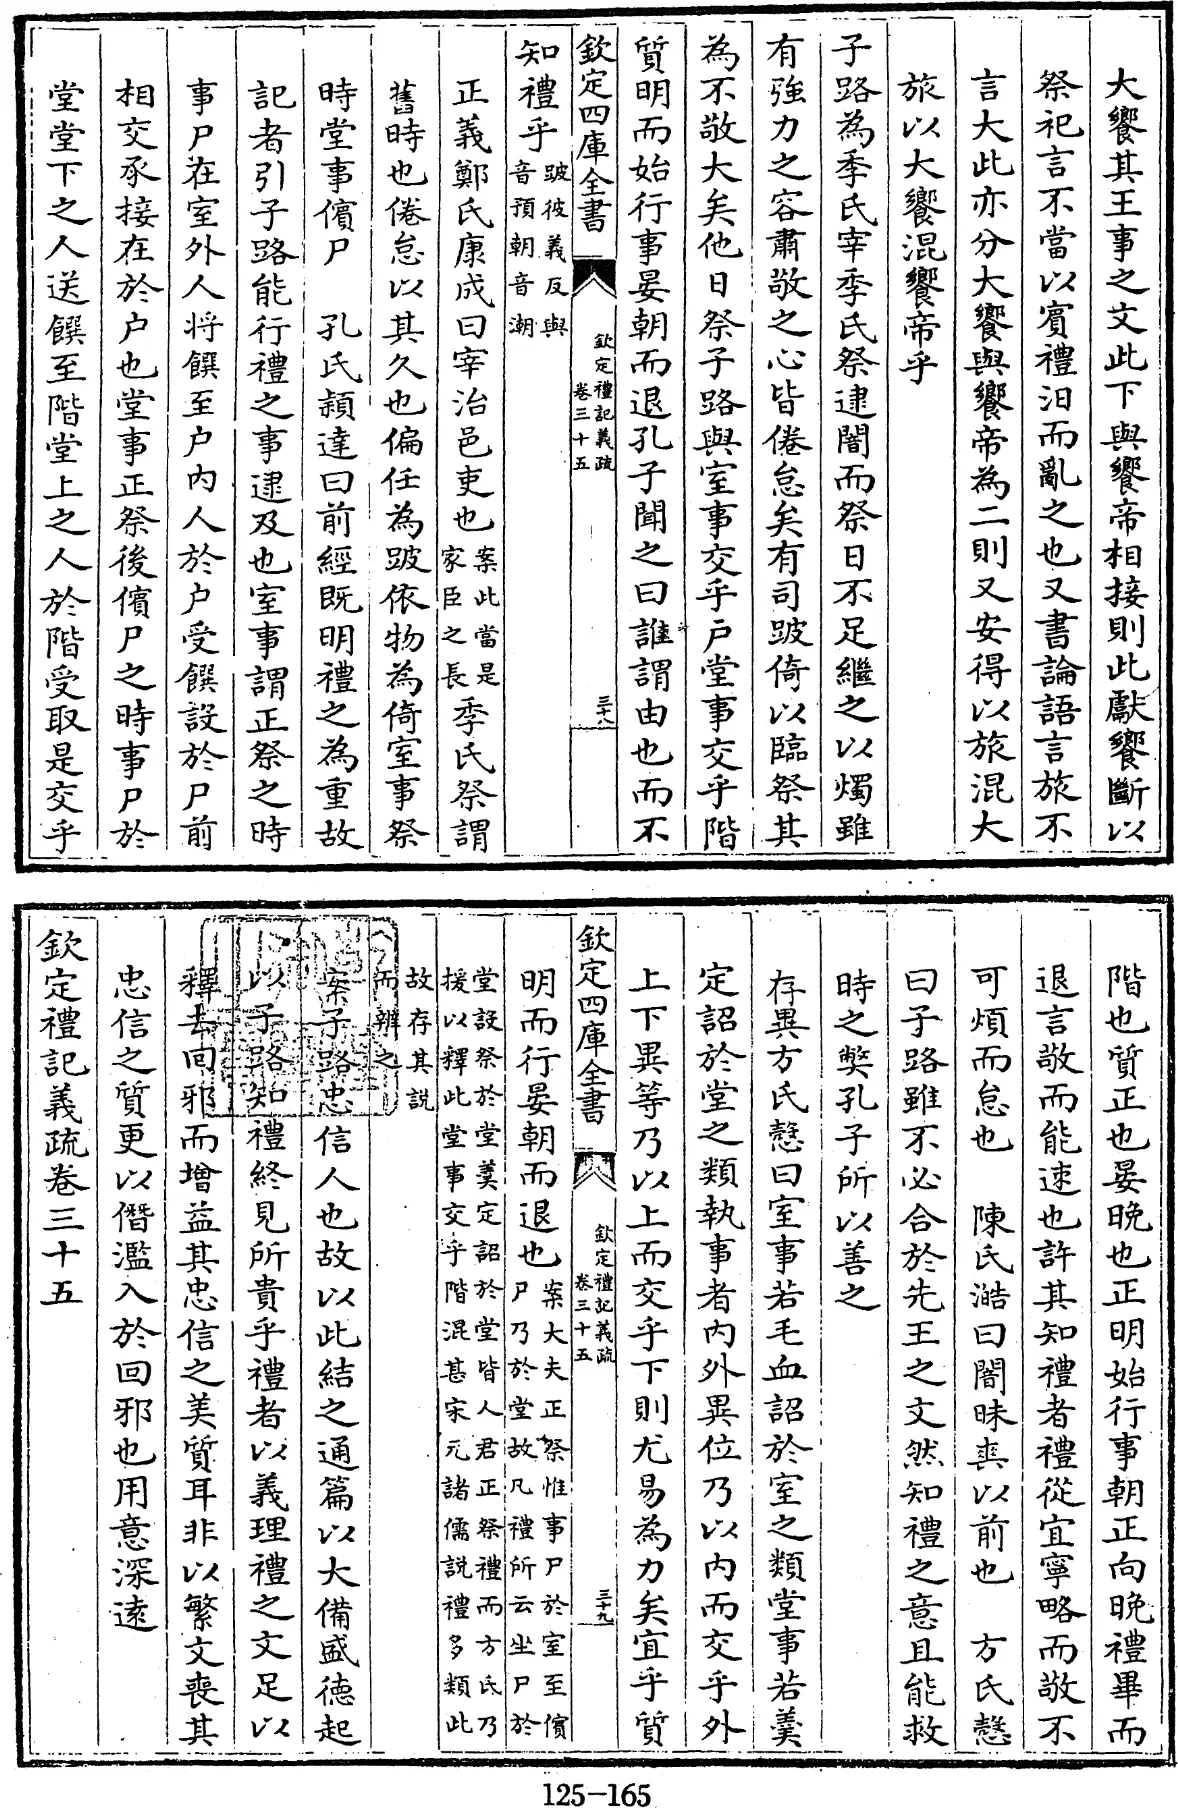 大饗其王事之文此下與饗帝相接則此獻饗斷以
祭祀言不當以賓禮汨而亂之也又書論語言旅不
言大此亦分大饗與饗帝為二則又安得以旅混大
旅以大饗混饗帝乎
子路為季氏宰季氏祭逮闇而祭日不足繼之以燭雖
有強力之容肅敬之心皆倦怠矣有司跛倚以臨祭其
為不敬大矣他日祭子路與室事交乎戶堂事交乎階
質明而始行事晏朝而退孔子聞之曰誰謂由也而不
欽定四庫全書
欽定禮記義疏
卷三十五
三十八
知禮乎跛彼義反與
音預朝音潮
正義鄭氏康成曰宰治邑吏也案此當是
家臣之長季氏祭謂
舊時也倦怠以其久也偏任為跛依物為倚室事祭
時堂事儐尸 孔氏穎達曰前經既明禮之為重故
記者引子路能行禮之事逮及也室事謂正祭之時
事尸在室外人將饌至户内人於户受饌設於尸前
相交承接在於户也堂事正祭後儐尸之時事尸於
堂堂下之人送饌至階堂上之人於階受取是交乎
階也質正也晏晚也正明始行事朝正向晚禮畢而
退言敬而能速也許其知禮者禮從宜寧略而敬不
可煩而怠也 陳氏澔曰闇昧爽以前也 方氏慤
曰子路雖不必合於先王之文然知禮之意且能救
時之獘孔子所以善之
存異方氏慤曰室事若毛血詔於室之類堂事若羮
定詔於堂之類執事者内外異位乃以内而交乎外
上下異等乃以上而交乎下則尤易為力矣宜乎質
欽定四庫全書
欽定禮記義疏
卷三十五
三十九
明而行晏朝而退也案大夫正祭惟事尸於室至儐
尸乃於堂故凡禮所云坐尸於
堂設祭於堂羮定詔於堂皆人君正祭禮而方氏乃
援以釋此堂事交乎階混甚宋元諸儒說禮多類此
故存其說
而辨之
案子路忠信人也故以此結之通篇以大備盛德起
以子路知禮終見所貴乎禮者以義理禮之文足以
釋去回邪而增益其忠信之美質耳非以繁文喪其
忠信之質更以僭濫入於回邪也用意深遠
欽定禮記義疏卷三十五
125-165